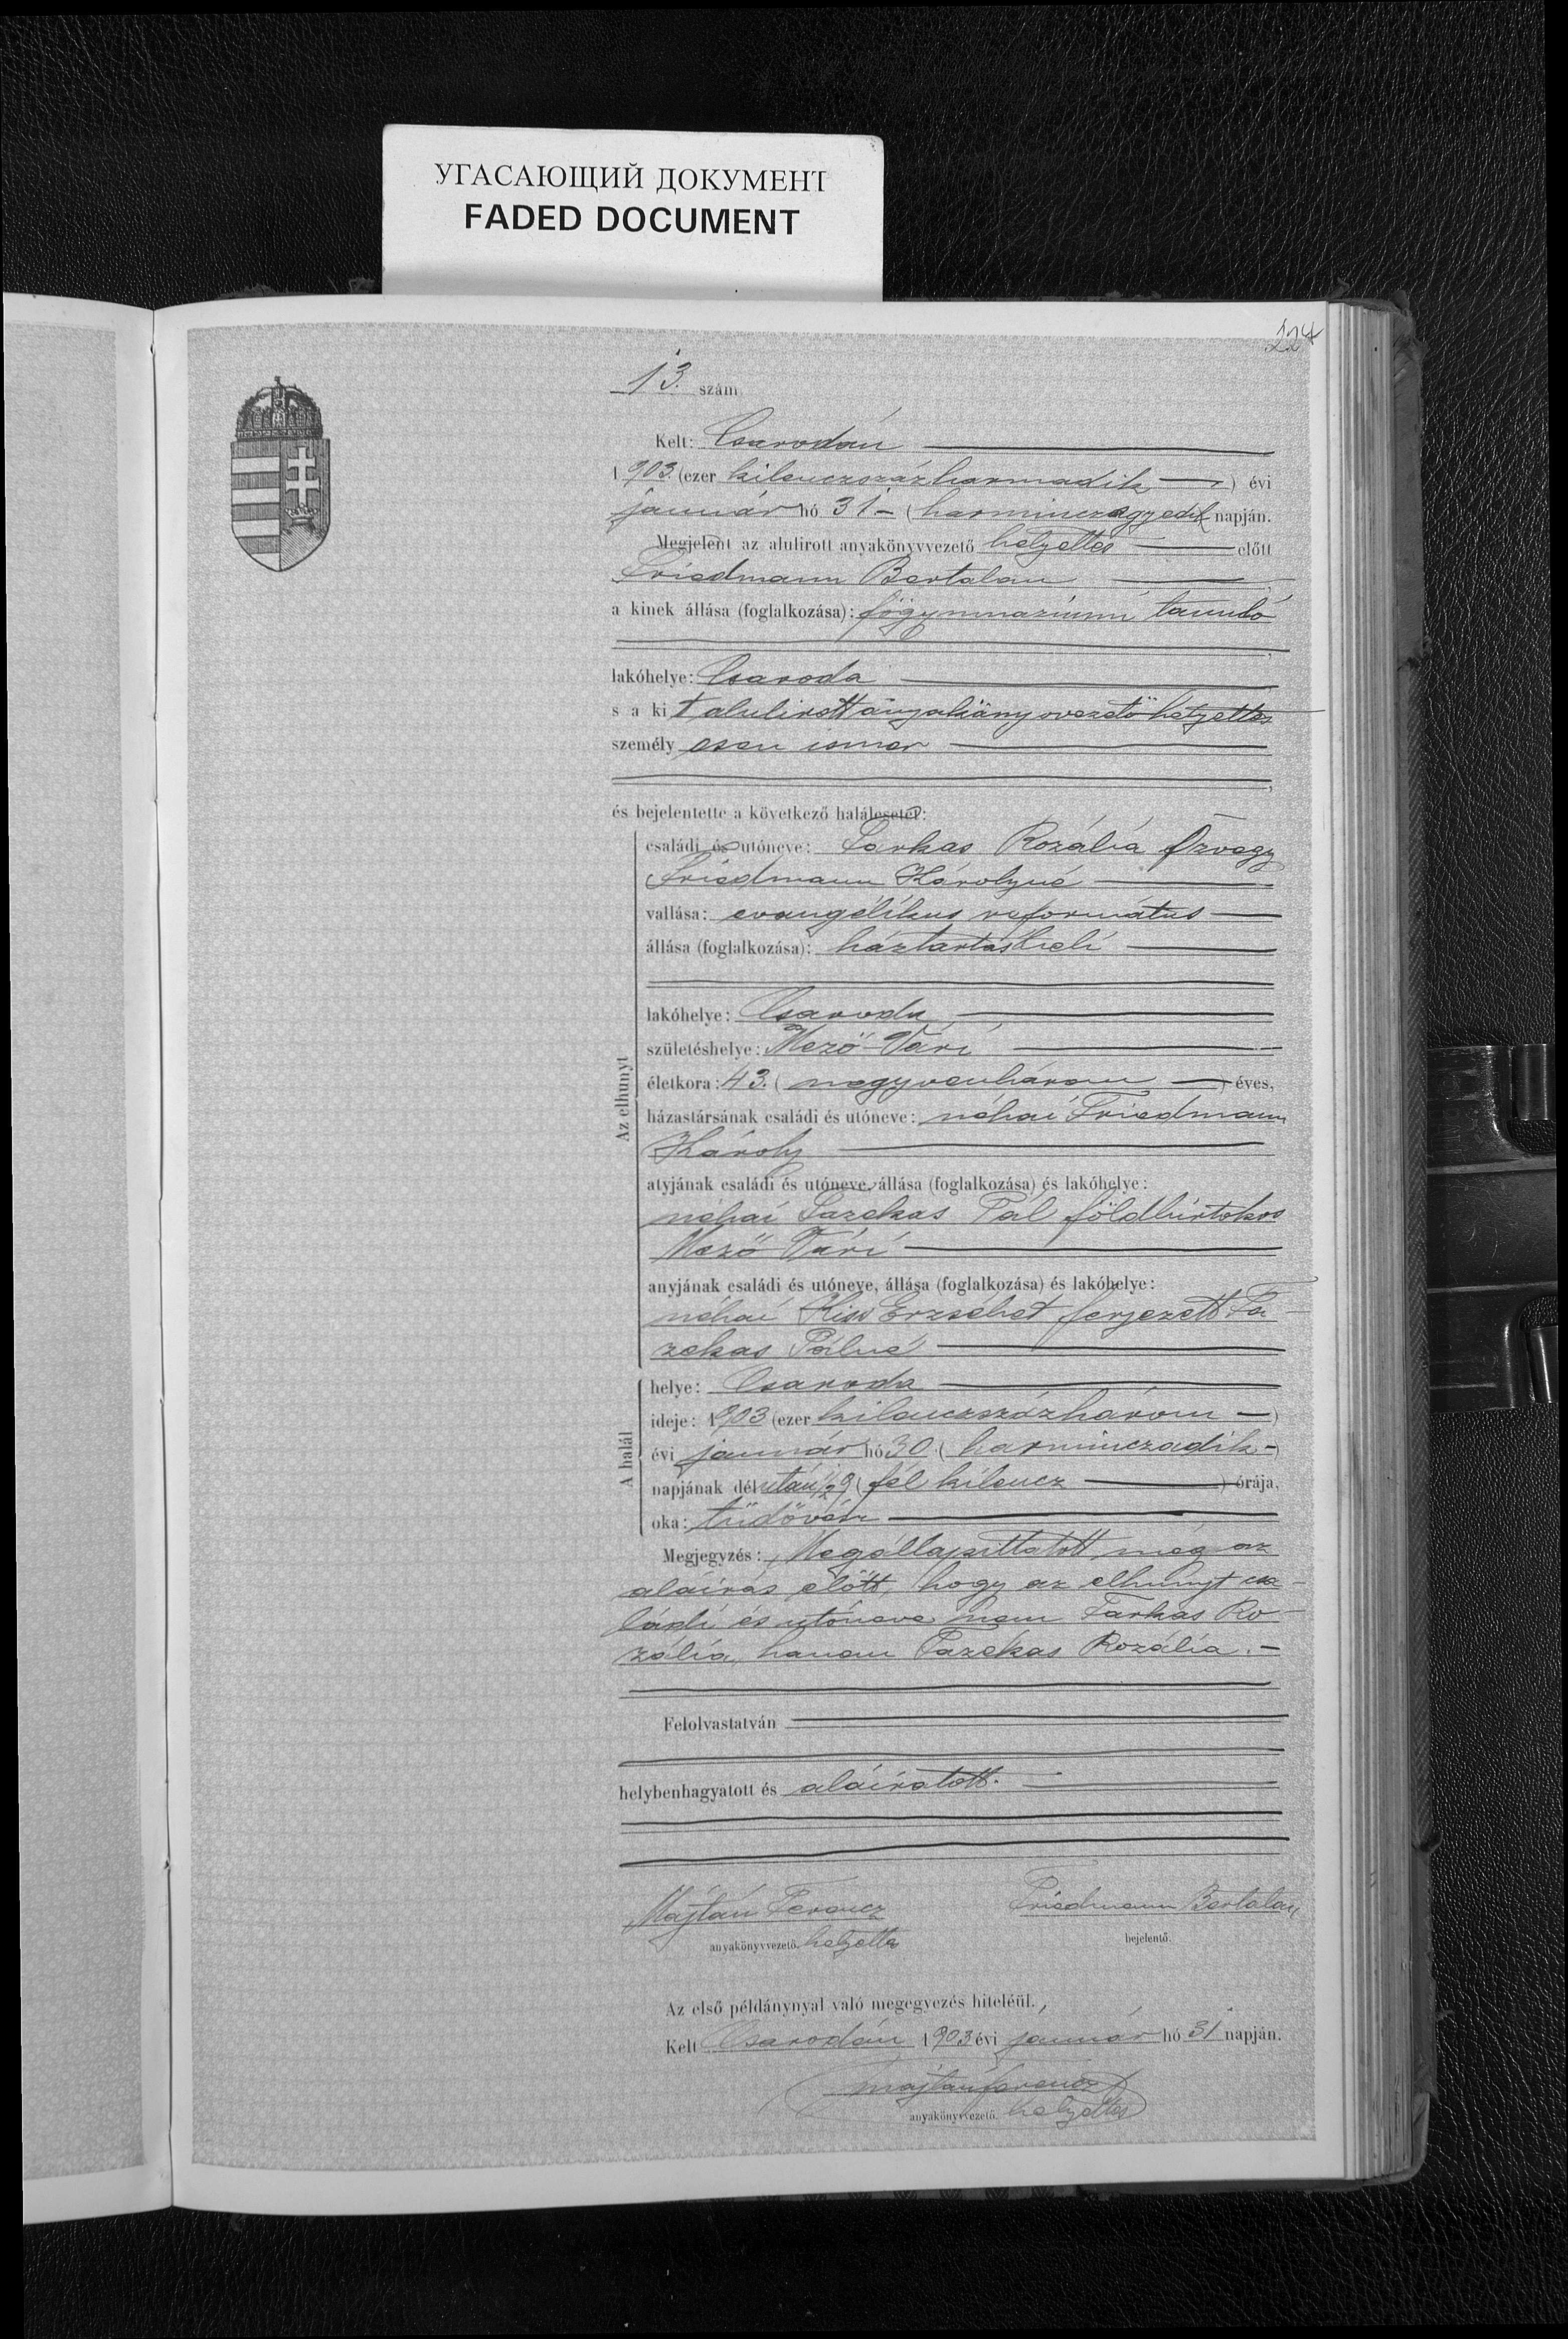 УГАСАЮЩИЙ ДОКУМЕНТ
FADED DOCUMENT
224
13. szám
Kelt: Csarodán
1903. (ezer kilenczszázharmadik) évi
január hó 31 (harminczegyedik) napján.
Megjelent az alulirott anyakönyvvezető helyettes előtt
Friedmann Bertalan
a kinek állása (foglalkozása): főgymnaziumi tanuló
lakóhelye: Csaroda
s a kit alulirott anyakönyvvezető helyettes
személyesen ismer
és bejelentette a következő halálesetet:
családi és utóneve: Farkas Rozália Özvegy
Friedmann Károlyné
vallása: evangélikus református
állása (foglalkozása): háztartásbeli
lakóhelye: Csaroda
születéshelye: Mező Vári
életkora: 43. (negyvenhárom) éves,
házastársának családi és utóneve: néhai Friedmann
Károly
atyjának családi és utóneve, állása (foglalkozása) és lakóhelye:
néhai Fazekas Pál földbirtokos
Mező Vári
anyjának családi és utóneve, állása (foglalkozása) és lakóhelye:
néhai Kiss Erzsébet férjezett Fa-
zekas Pálné
Az elhunyt
helye: Csaroda
ideje: 1903 (ezer kilenczszázhárom)
évi január hó 30 (harminczadik)
napjának délután ½9 (fél kilencz) órája,
oka: tüdővész
A halál
Megjegyzés: Megállapíttatott még az
aláírás előtt, hogy az elhunyt csa-
ládi és utóneve nem Farkas Ro-
zália, hanem Fazekas Rozália.
Felolvastatván
helybenhagyatott és aláíratott.
Majtán Ferencz Friedmann Bertalan
anyakönyvvezető. helyettes bejelentő.
Az első példánynyal való megegyezés hiteléül.
Kelt Csarodán 1903 évi január hó 31 napján.
Majtán Ferencz
anyakönyvvezető. helyettes